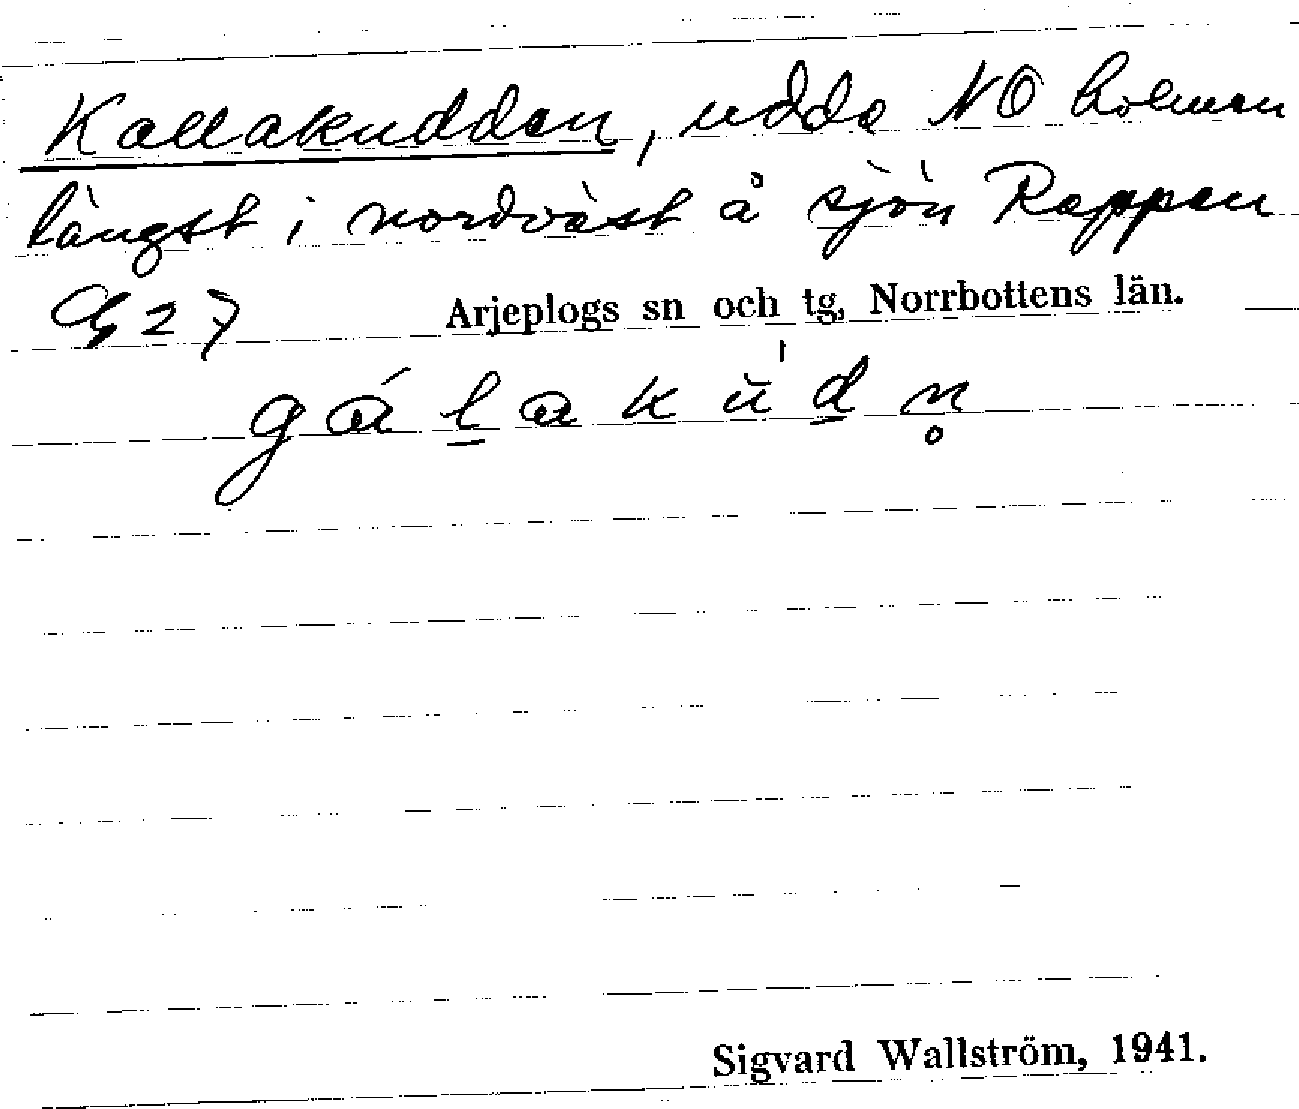 Kallakudden, udde NO holmen
längst i nordväst å sjön Rappen
G 27 Arjeplogs sn och tg, Norrbottens län.
gálakùdn̥
Sigvard Wallström, 1941.